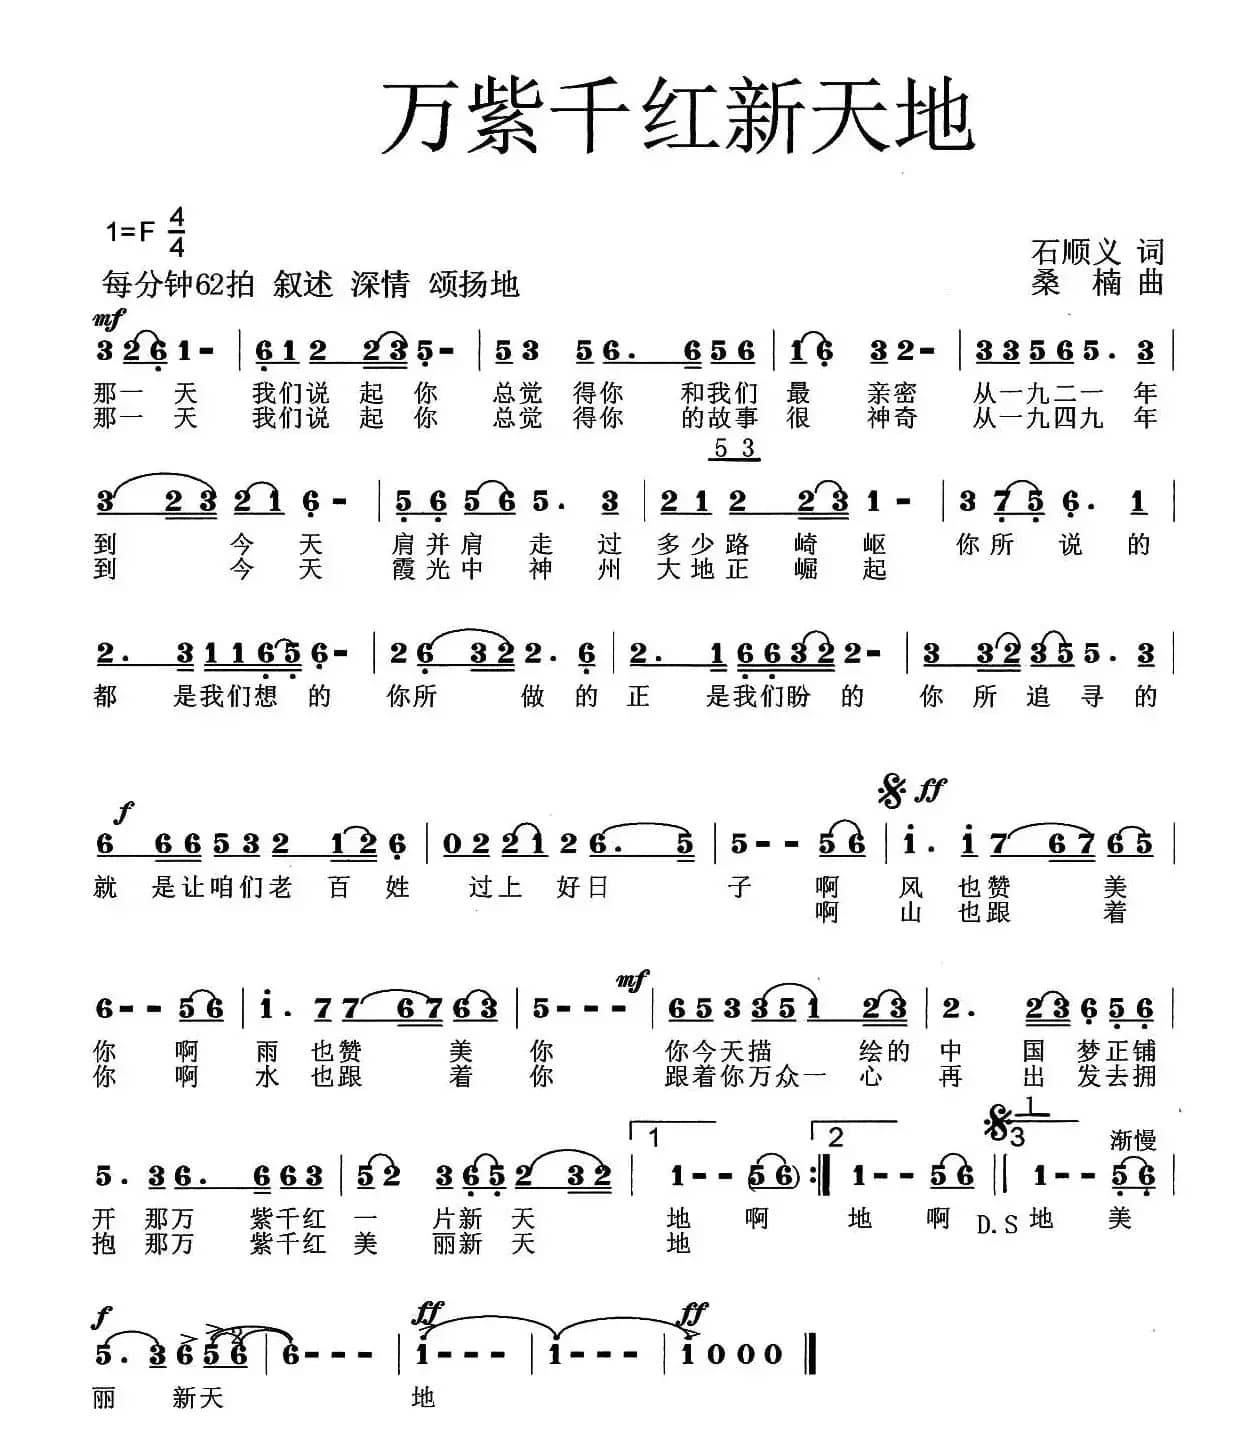 万紫千红新天地
1=F 4/4
石顺义 词
每分钟62拍 叙述 深情 颂扬地
桑 楠 曲
mf
3 2 6 1 - | 6 1 2 2 3 5 - | 5 3 5 6. 6 5 6 | 1 6 3 2 - | 3 3 5 6 5. 3 |
那一天 我们说起你 总觉得你 和我们最 亲密 从一九二一年
那一天 我们说起你 总觉得你 的故事很 神奇 从一九四九年
5 3
3 2 3 2 1 6 - | 5 6 5 6 5. 3 | 2 1 2 2 3 1 - | 3 7 5 6. 1 |
到 今 天 肩并肩 走 过 多少路 崎 岖 你所 说 的
到 今 天 霞光中 神 州 大地正 崛 起
2. 3 1 1 6 5 6 - | 2 6 3 2 2. 6 | 2. 1 6 6 3 2 2 - | 3 3 2 3 5 5. 3 |
都 是我们想 的 你所 做 的 正 是我们盼 的 你 所 追 寻 的
f 𝄋 ff
6 6 6 5 3 2 1 2 6 | 0 2 2 1 2 6. 5 | 5 - - 5 6 | 1. 1 7 6 7 6 5 |
就 是让咱们老 百 姓 过上 好日 子 啊 风 也赞 美
啊 山 也跟 着
mf
6 - - 5 6 | 1. 7 7 6 7 6 3 | 5 - - - | 6 5 3 3 5 1 2 3 | 2. 2 3 6 5 6 |
你 啊 雨 也赞 美 你 你今天描 绘的 中 国 梦正铺
你 啊 水 也跟 着 你 跟着你万众一 心 再 出 发去拥
1
1 2 𝄋 3 渐慢
5. 3 6. 6 6 3 | 5 2 3 6 5 2 3 2 | 1 - - (5 6) :| 1 - - 5 6 || 1 - - 5 6 |
开 那万 紫千红 一 片新 天 地 啊 地 啊 D.S 地 美
抱 那万 紫千红 美 丽新 天 地
f ff ff
5. 3 6 5 6 2 | 6 - - - | 1 - - - | 1 - - - | 1 0 0 0 ||
丽 新天 地